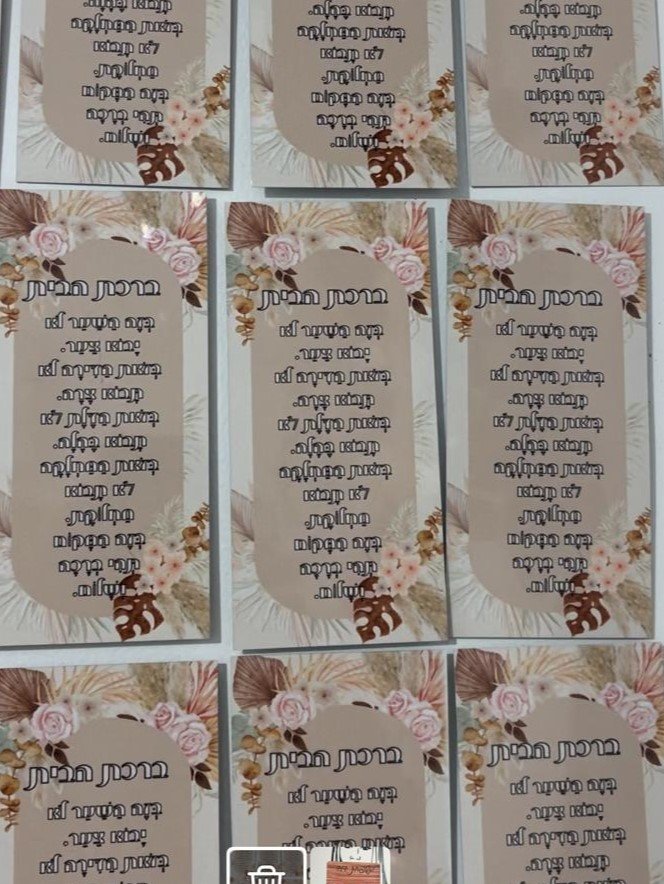 תָבוֹא בֶּהָלָה.
בְּזֹאת הַמַּחְלָקָה
לֹא תָבוֹא
מַחְלוֹקֶת.
בְּזֶה הַמָּקוֹם
תְּהִי בְרָכָה
וְשָׁלוֹם.
תָבוֹא בֶּהָלָה.
בְּזֹאת הַמַּחְלָקָה
לֹא תָבוֹא
מַחְלוֹקֶת.
בְּזֶה הַמָּקוֹם
תְּהִי בְרָכָה
וְשָׁלוֹם.
תָבוֹא בֶּהָלָה.
בְּזֹאת הַמַּחְלָקָה
לֹא תָבוֹא
מַחְלוֹקֶת.
בְּזֶה הַמָּקוֹם
תְּהִי בְרָכָה
וְשָׁלוֹם.
ברכת הבית
בְּזֶה הַשַּׁעַר לֹא
יָבוֹא צַעַר.
בְּזֹאת הַדִּירָה לֹא
תָבוֹא צָרָה.
בְּזֹאת הַדֶּלֶת לֹא
תָבוֹא בֶּהָלָה.
בְּזֹאת הַמַּחְלָקָה
לֹא תָבוֹא
מַחְלוֹקֶת.
בְּזֶה הַמָּקוֹם
תְּהִי בְרָכָה
וְשָׁלוֹם.
ברכת הבית
בְּזֶה הַשַּׁעַר לֹא
יָבוֹא צַעַר.
בְּזֹאת הַדִּירָה לֹא
תָבוֹא צָרָה.
בְּזֹאת הַדֶּלֶת לֹא
תָבוֹא בֶּהָלָה.
בְּזֹאת הַמַּחְלָקָה
לֹא תָבוֹא
מַחְלוֹקֶת.
בְּזֶה הַמָּקוֹם
תְּהִי בְרָכָה
וְשָׁלוֹם.
ברכת הבית
בְּזֶה הַשַּׁעַר לֹא
יָבוֹא צַעַר.
בְּזֹאת הַדִּירָה לֹא
תָבוֹא צָרָה.
בְּזֹאת הַדֶּלֶת לֹא
תָבוֹא בֶּהָלָה.
בְּזֹאת הַמַּחְלָקָה
לֹא תָבוֹא
מַחְלוֹקֶת.
בְּזֶה הַמָּקוֹם
תְּהִי בְרָכָה
וְשָׁלוֹם.
ברכת הבית
בְּזֶה הַשַּׁעַר לֹא
יָבוֹא צַעַר.
בְּזֹאת הַדִּירָה לֹא
תָבוֹא צָרָה.
ברכת הבית
בְּזֶה הַשַּׁעַר לֹא
יָבוֹא צַעַר.
בְּזֹאת הַדִּירָה לֹא
ברכת הבית
בְּזֶה הַשַּׁעַר לֹא
יָבוֹא צַעַר.
בְּזֹאת הַדִּירָה לֹא